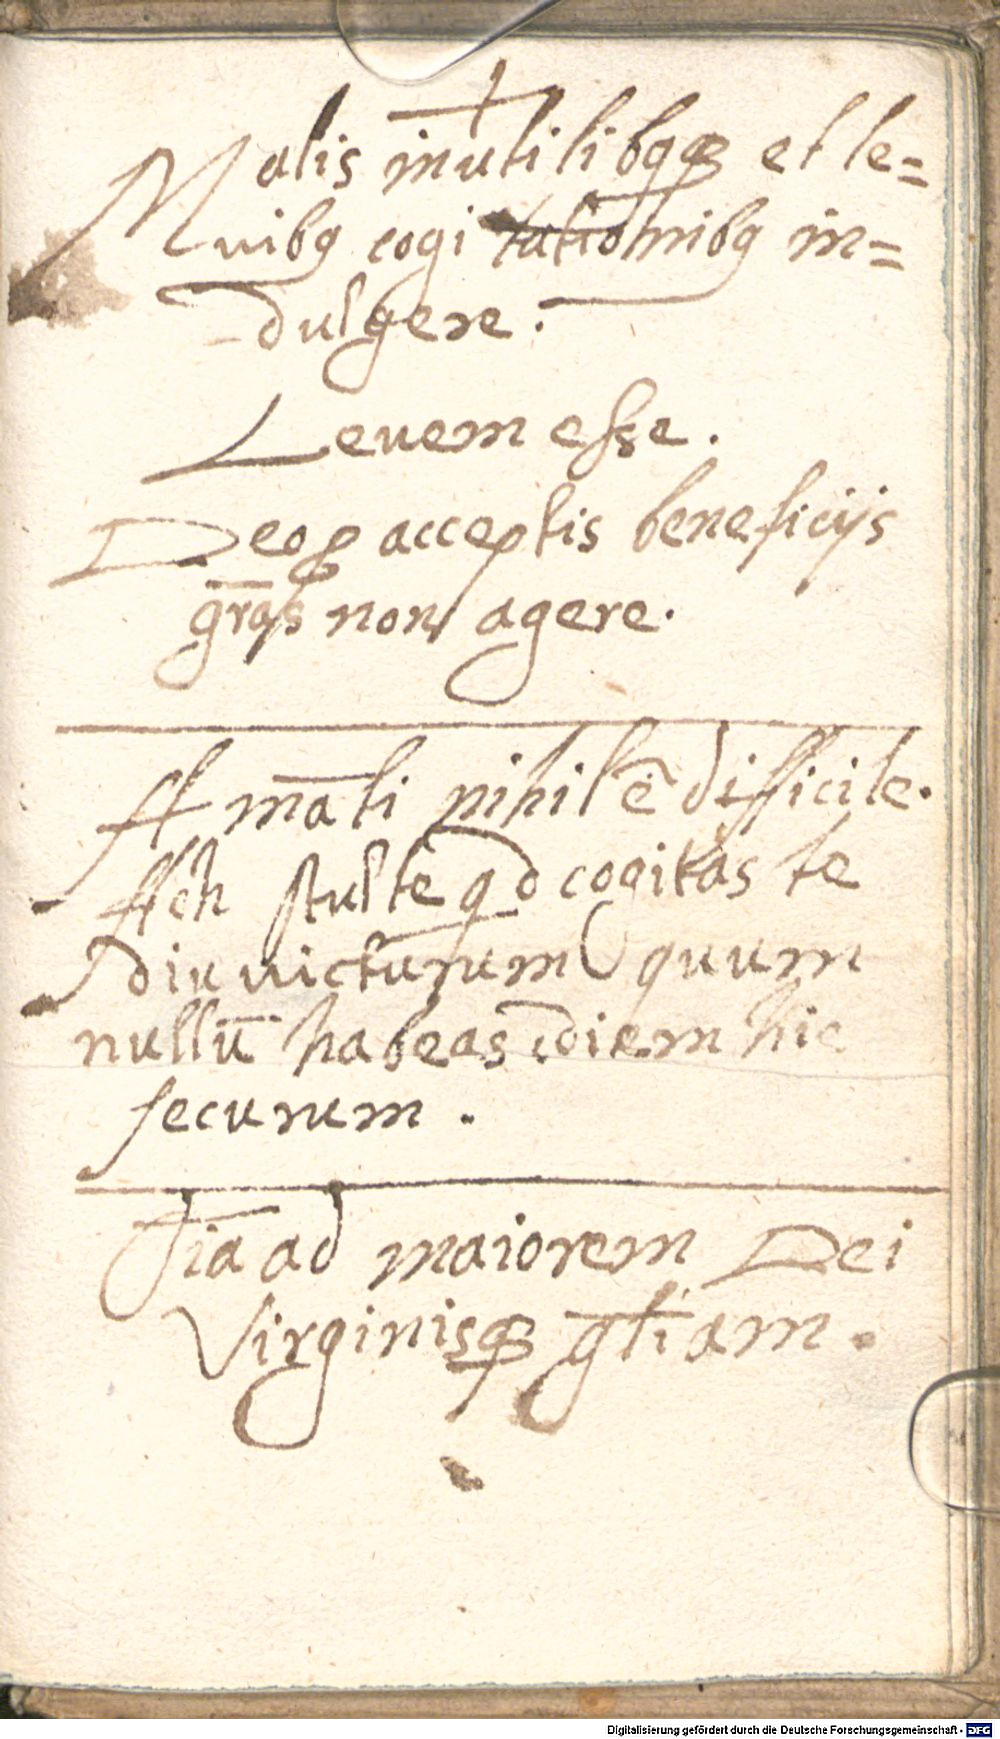 Malis inutilibqꝫ et le=
uibq cogitationibq in=
dulgere.
Leuem esse.
Deo ꝓ acceptis beneficijs
gr̄as non agere.
Amāti nihil ē difficile.
Ach stulte qd cogitas te
diu uicturum quum
nullū habeas diem hic
securum.
Fia ad maiorem Dei
Virginisqꝫ gl̄iam.
Digitalisierung gefördert durch die Deutsche Forschungsgemeinschaft - DFG